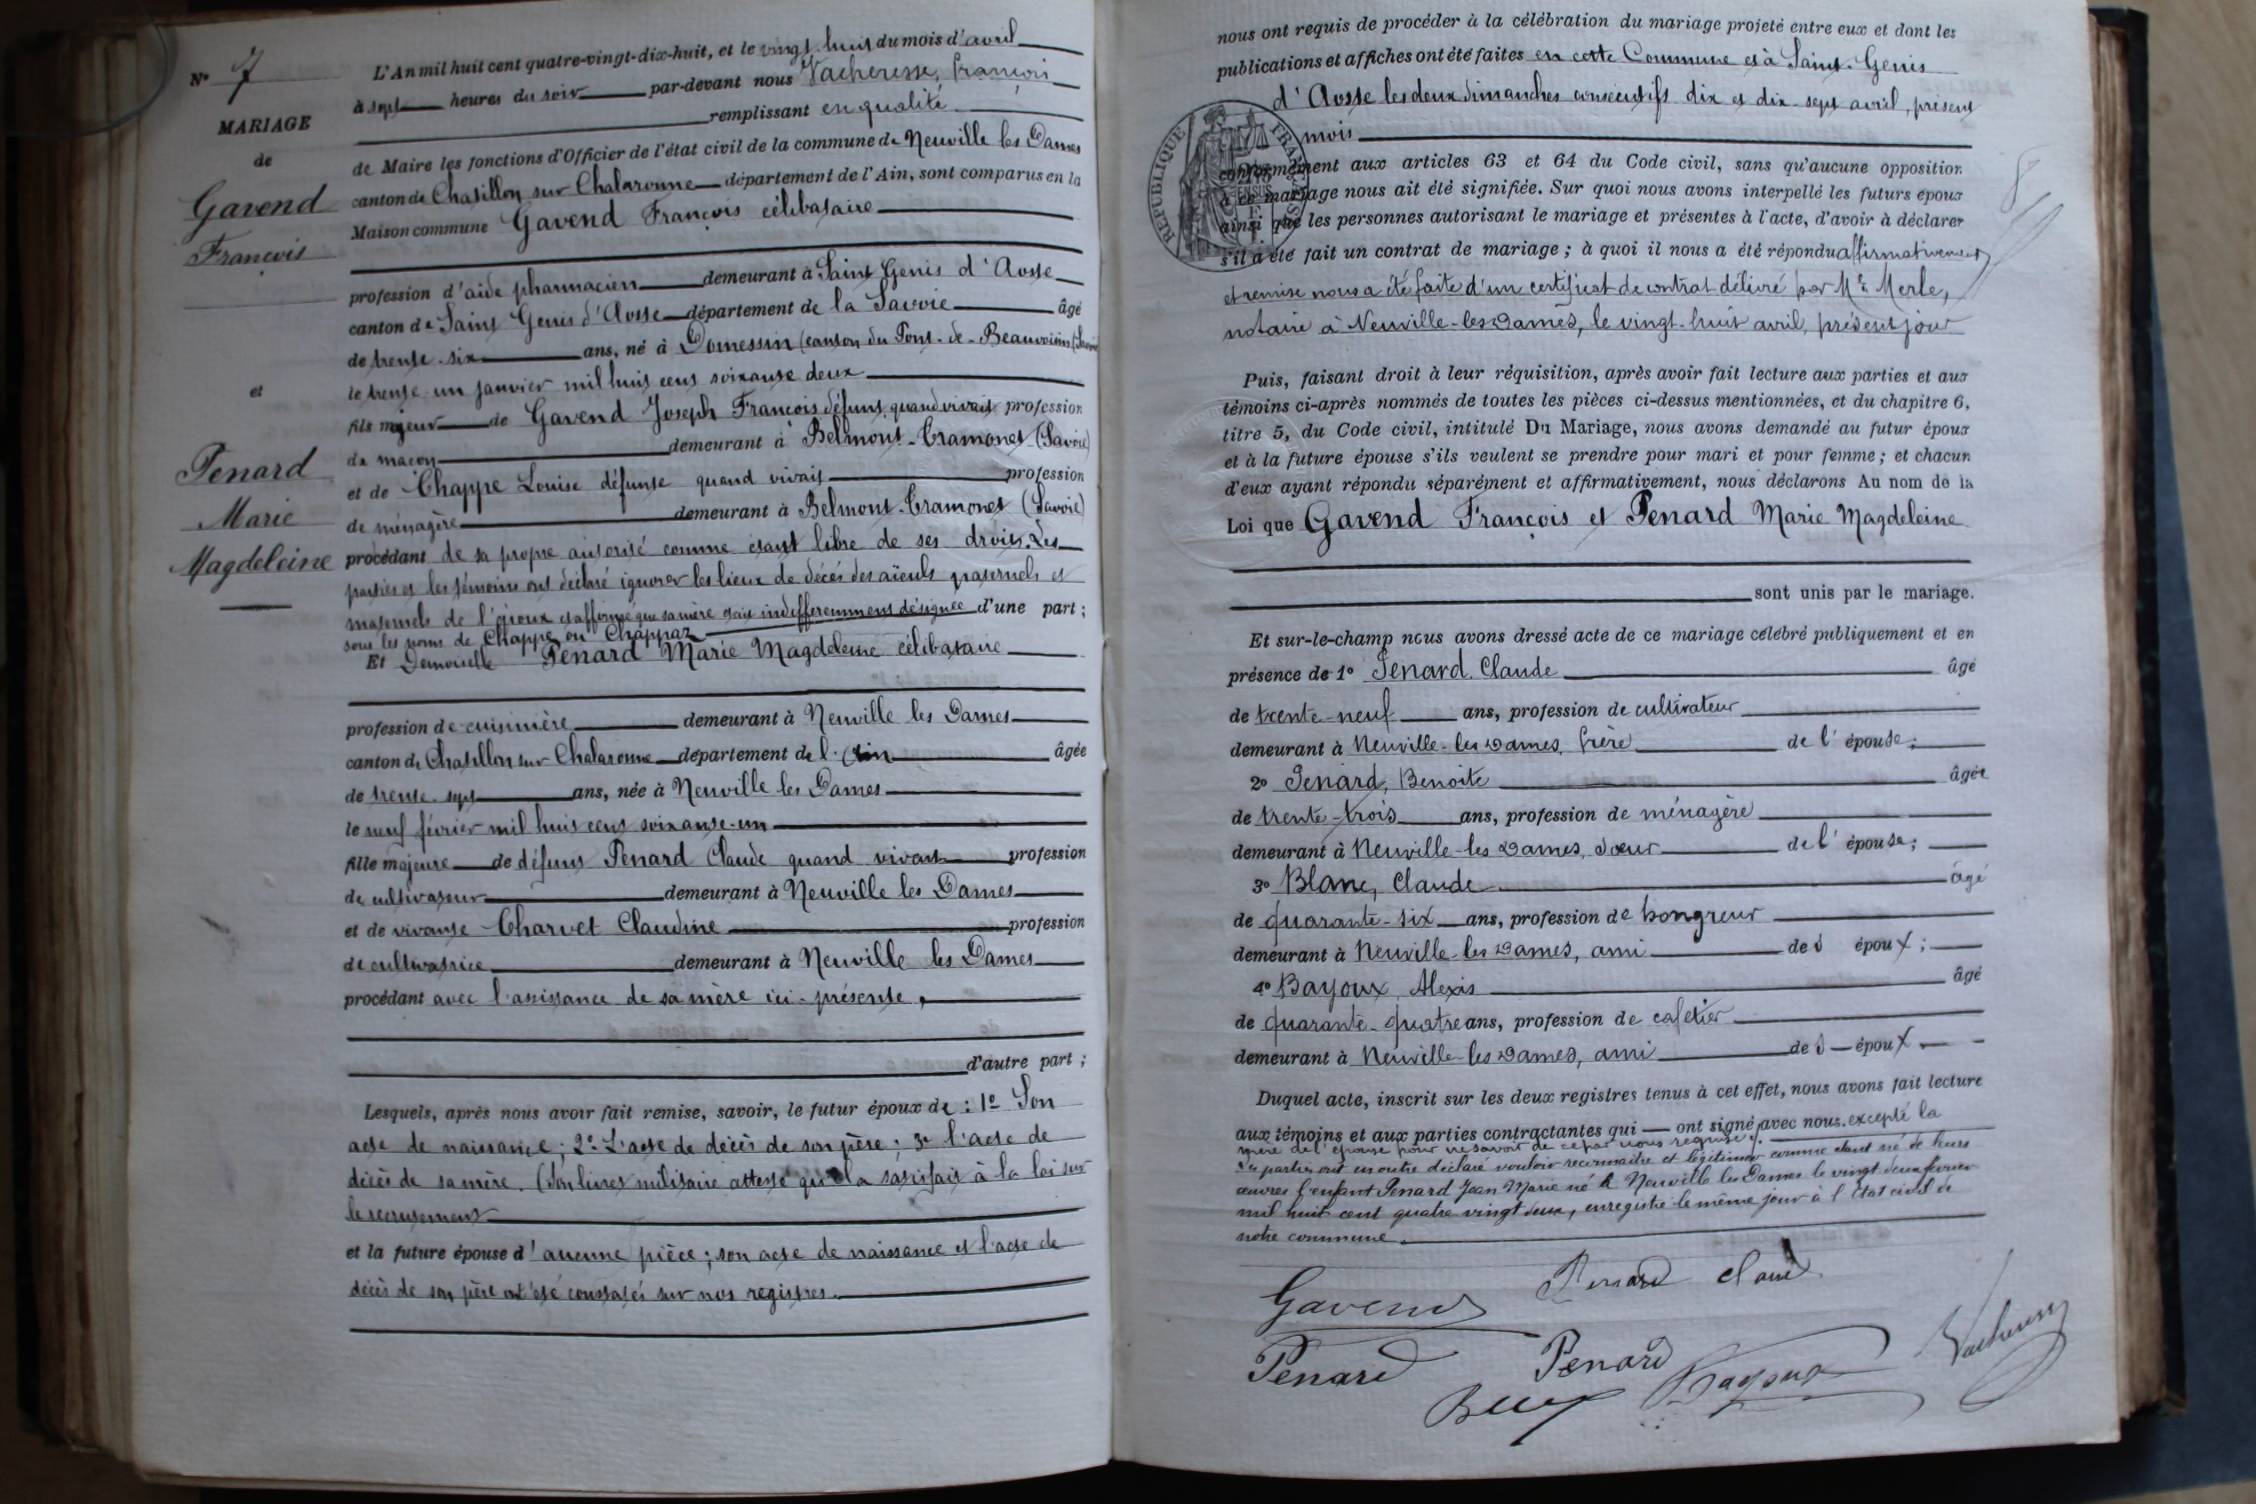 N° 7
MARIAGE
de
Gavend
François
et
Penard
Marie
Magdeleine
L'An mil huit cent quatre-vingt-dix-huit, et le vingt huit du mois d'avril
à sept heures du soir par-devant nous Vacheresse, françois
remplissant en qualité
de Maire les fonctions d'Officier de l'état civil de la commune de Neuville les Dames
canton de Chatillon sur Chalaronne département de l'Ain, sont comparus en la
Maison commune Gavend François célibataire
profession d'aide pharmacien demeurant à Saint Genis d'Aoste
canton de Saint Genis d'Aoste département de la Savoie âgé
de trente-six ans, né à Domessin (canton du Pont-de-Beauvoisin (Savoie)
le trente-un janvier mil huit cent soixante deux
fils majeur de Gavend Joseph François défunt quand vivait profession
de maçon demeurant à Belmont-Tramonet (Savoie)
et de Chappe Louise défunte quand vivait profession
de ménagère demeurant à Belmont-Tramonet (Savoie)
procédant de sa propre autorité comme étant libre de ses droits. Les
parties et les témoins ont déclaré ignorer les lieux de décès des aïeuls paternels et
maternels de l'époux et affirmé que sa mère était indifféremment désignée d'une part ;
sous les noms de Chappe ou Chappaz
Et Demoiselle Penard Marie Magdeleine célibataire
profession de cuisinière demeurant à Neuville les Dames
canton de Chatillon sur Chalaronne département de l'Ain âgée
de trente-sept ans, née à Neuville les Dames
le neuf février mil huit cent soixante-un
fille majeure de défunt Penard Claude quand vivait profession
de cultivateur demeurant à Neuville les Dames
et de vivante Charvet Claudine profession
de cultivatrice demeurant à Neuville les Dames
procédant avec l'assistance de sa mère ici-présente,
d'autre part ;
Lesquels, après nous avoir fait remise, savoir, le futur époux de : 1° Son
acte de naissance ; 2° L'acte de décès de son père ; 3° l'acte de
décès de sa mère. (Son livret militaire atteste qu'il a satisfait à la loi sur
le recrutement
et la future épouse d'aucune pièce ; son acte de naissance et l'acte de
décès de son père ont été constatés sur nos registres.
nous ont requis de procéder à la célébration du mariage projeté entre eux et dont les
publications et affiches ont été faites en cette Commune et à Saint-Genis
d'Aoste les deux dimanches consécutifs dix et dix-sept avril, présent
mois
RÉPUBLIQUE FRANÇAISE
conformément aux articles 63 et 64 du Code civil, sans qu'aucune opposition
à ce mariage nous ait été signifiée. Sur quoi nous avons interpellé les futurs époux
ainsi que les personnes autorisant le mariage et présentes à l'acte, d'avoir à déclarer
s'il a été fait un contrat de mariage ; à quoi il nous a été répondu affirmativement
et remise nous a été faite d'un certificat de contrat délivré par Me Merle,
notaire à Neuville-les-Dames, le vingt-huit avril, présent jour
Puis, faisant droit à leur réquisition, après avoir fait lecture aux parties et aux
témoins ci-après nommés de toutes les pièces ci-dessus mentionnées, et du chapitre 6,
titre 5, du Code civil, intitulé Du Mariage, nous avons demandé au futur époux
et à la future épouse s'ils veulent se prendre pour mari et pour femme ; et chacun
d'eux ayant répondu séparément et affirmativement, nous déclarons Au nom de la
Loi que Gavend François et Penard Marie Magdeleine
sont unis par le mariage.
Et sur-le-champ nous avons dressé acte de ce mariage célébré publiquement et en
présence de 1° Penard, Claude âgé
de trente-neuf ans, profession de cultivateur
demeurant à Neuville-les-Dames, frère de l'épouse ;
2° Penard, Benoîte âgée
de trente-trois ans, profession de ménagère
demeurant à Neuville-les-Dames, sœur de l'épouse ;
3° Blanc, Claude âgé
de quarante-six ans, profession de hongreur
demeurant à Neuville-les-Dames, ami de l'époux ;
4° Bayoux, Alexis âgé
de quarante-quatre ans, profession de cafetier
demeurant à Neuville-les-Dames, ami de l'époux.
Duquel acte, inscrit sur les deux registres tenus à cet effet, nous avons fait lecture
aux témoins et aux parties contractantes qui ont signé avec nous. excepté la
mère de l'épouse pour ne savoir de ce par nous requise.
Les parties ont en outre déclaré vouloir reconnaître et légitimer comme étant né de leurs
œuvres l'enfant Penard Jean Marie né à Neuville les Dames le vingt deux février
mil huit cent quatre vingt deux, enregistré le même jour à l'état civil de
notre commune.
Gavend
Penard Claude
Penard
Penard
Bayoux
Vacheresse